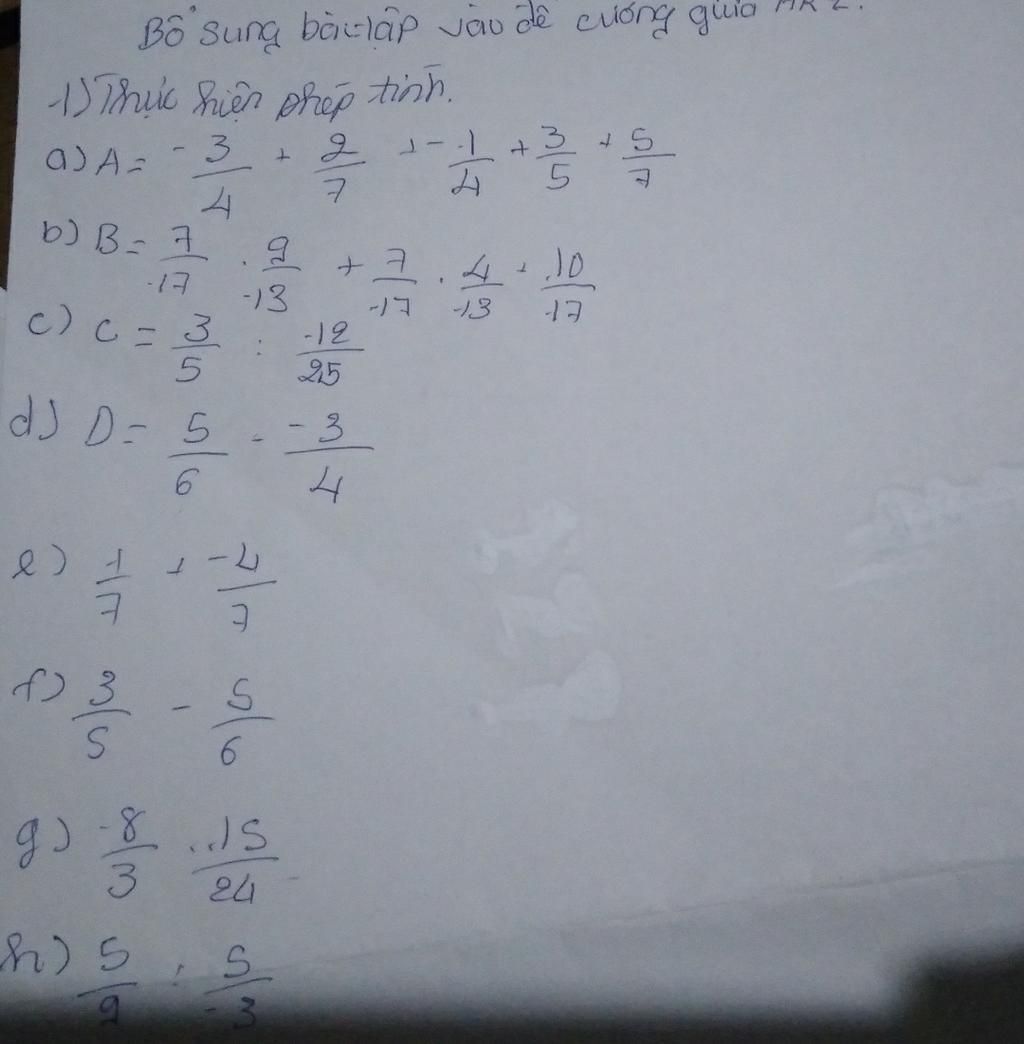 Bổ sung bài tập vào đề cương giữa HK 2.
1) Thực hiện phép tính.
a) A = -3/4 + 2/7 + -1/4 + 3/5 + 5/7
b) B = 7/-17 . 9/-13 + 7/-17 . 4/-13 + 10/17
c) C = 3/5 : -12/25
d) D = 5/6 - -3/4
e) 1/7 + -4/7
f) 3/5 - 5/6
g) -8/3 . 15/24
h) 5/9 : 5/-3